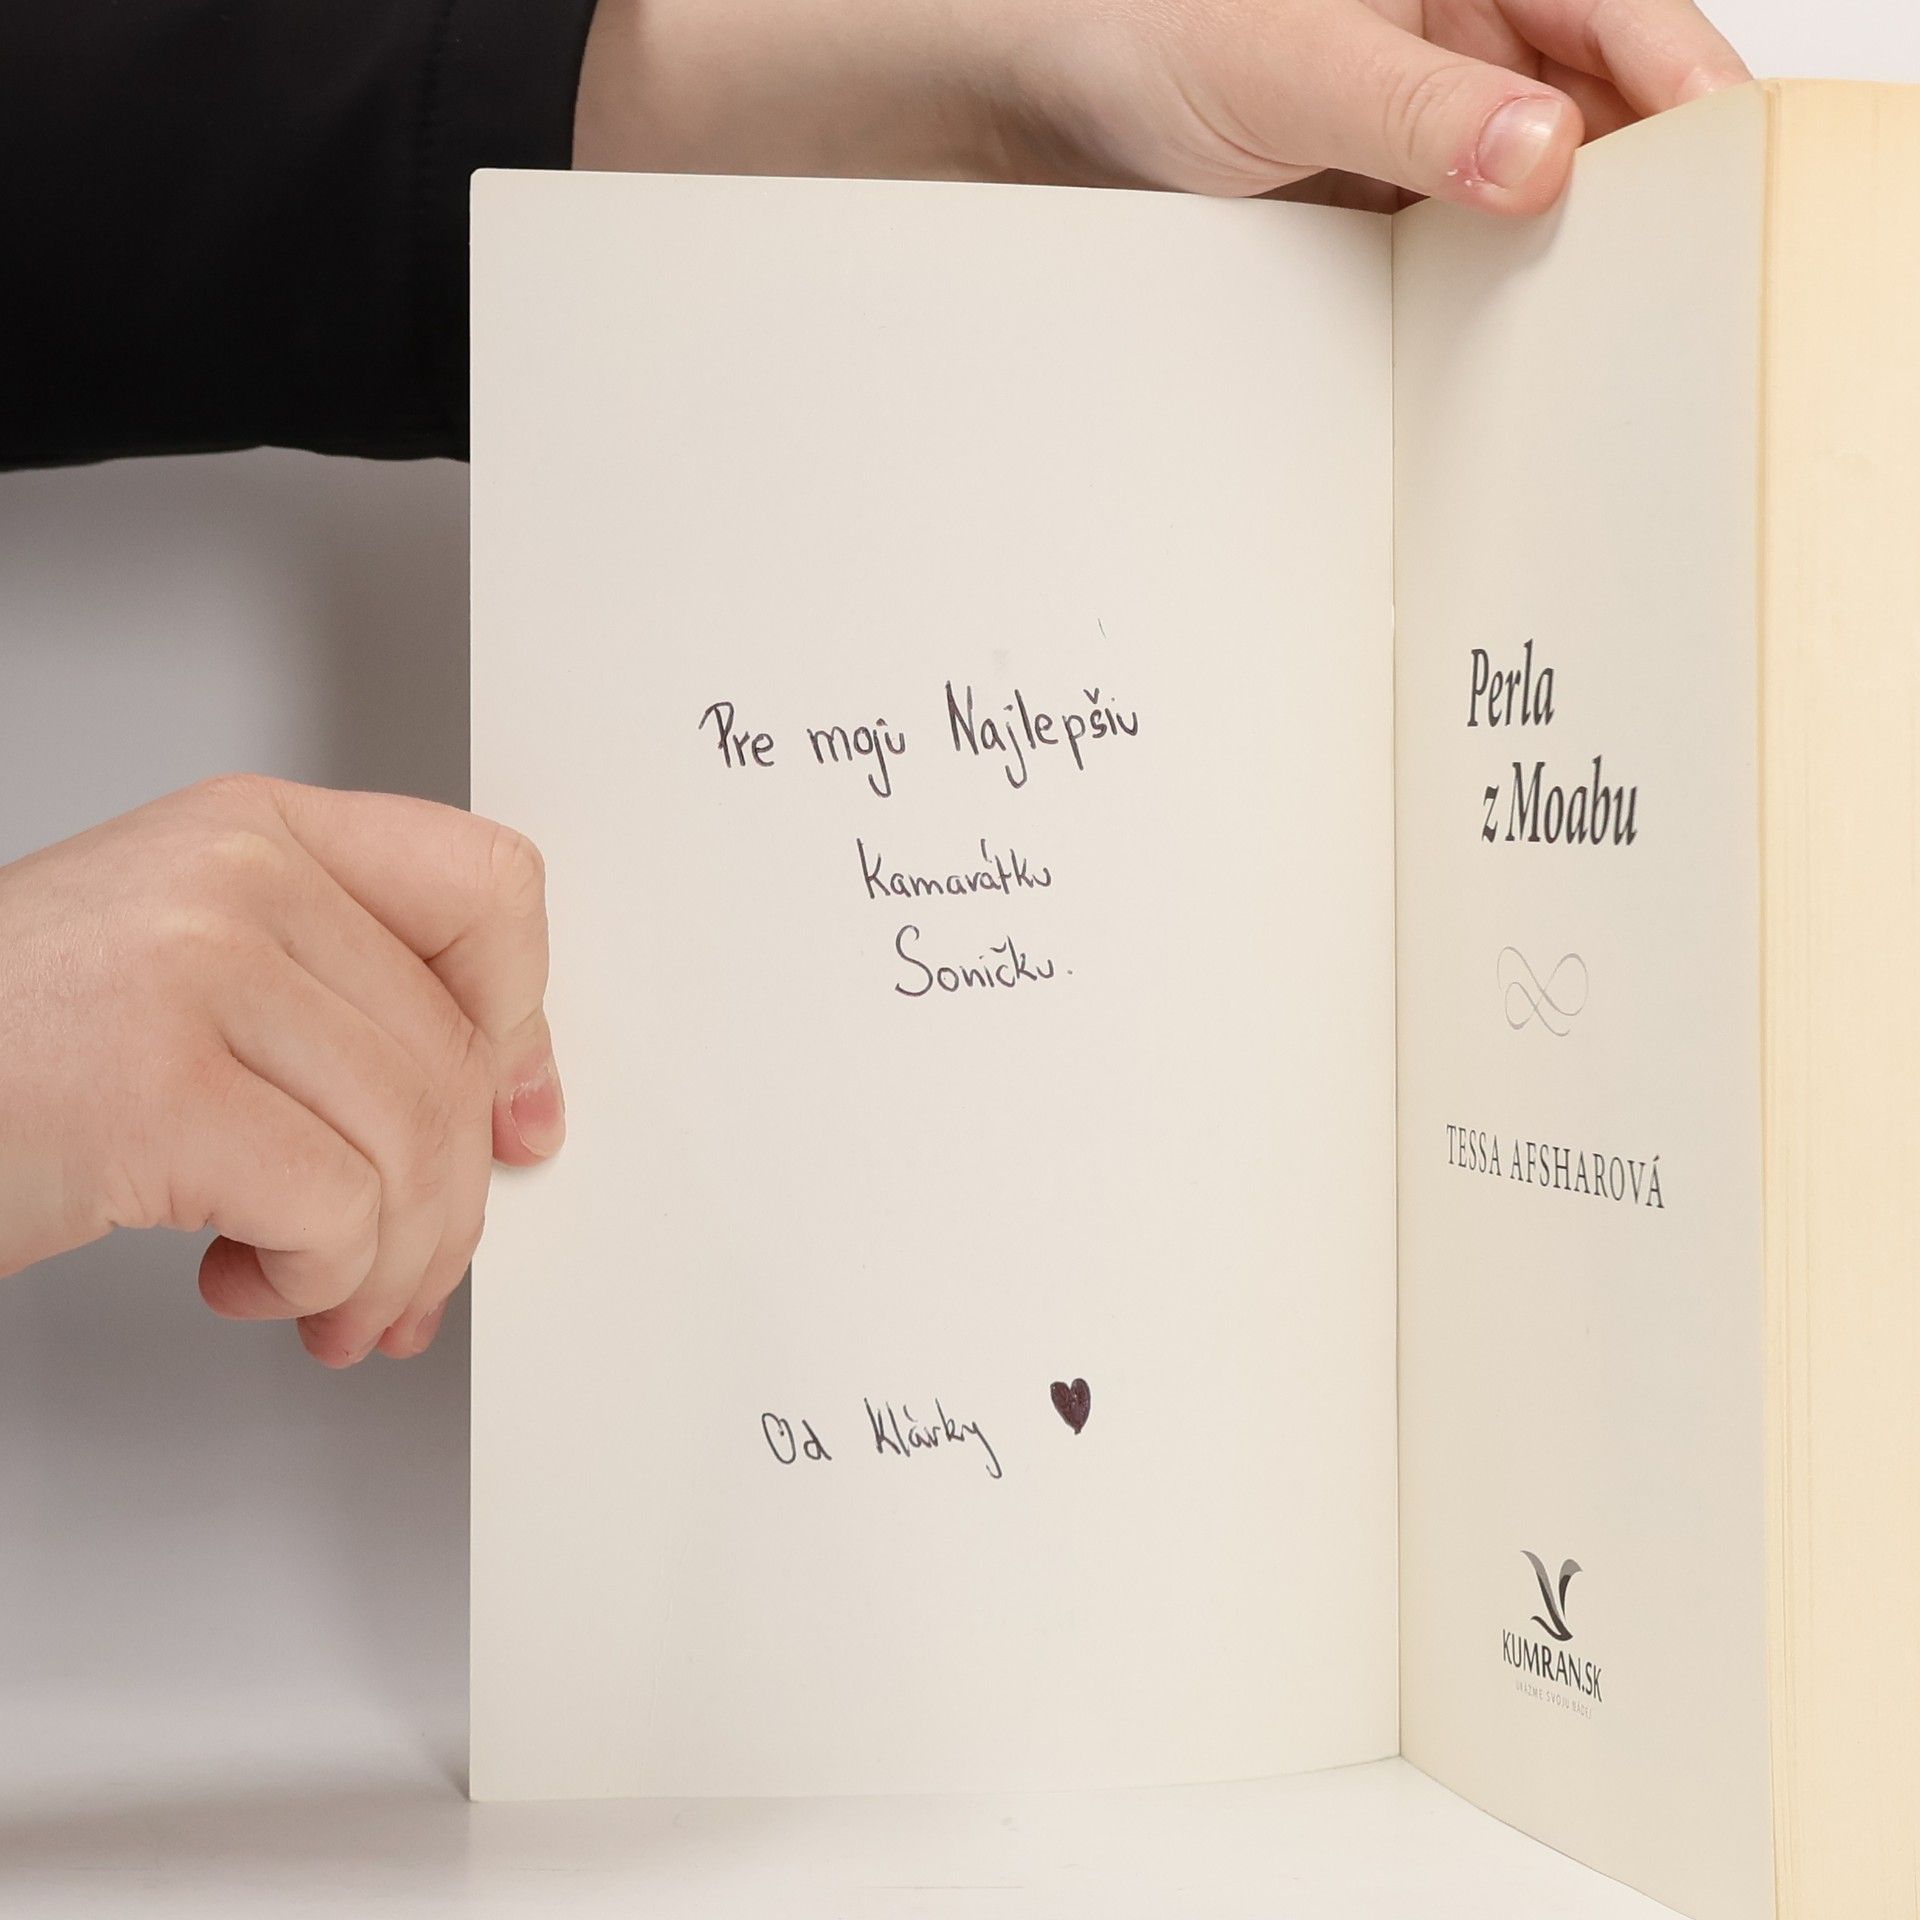 Pre moju Najlepšiu
Kamarátku
Soničku.
Od Klárky
Perla
z Moabu
TESSA AFSHAROVÁ
KUMRAN.SK
UKÁŽME SVOJU NÁDEJ